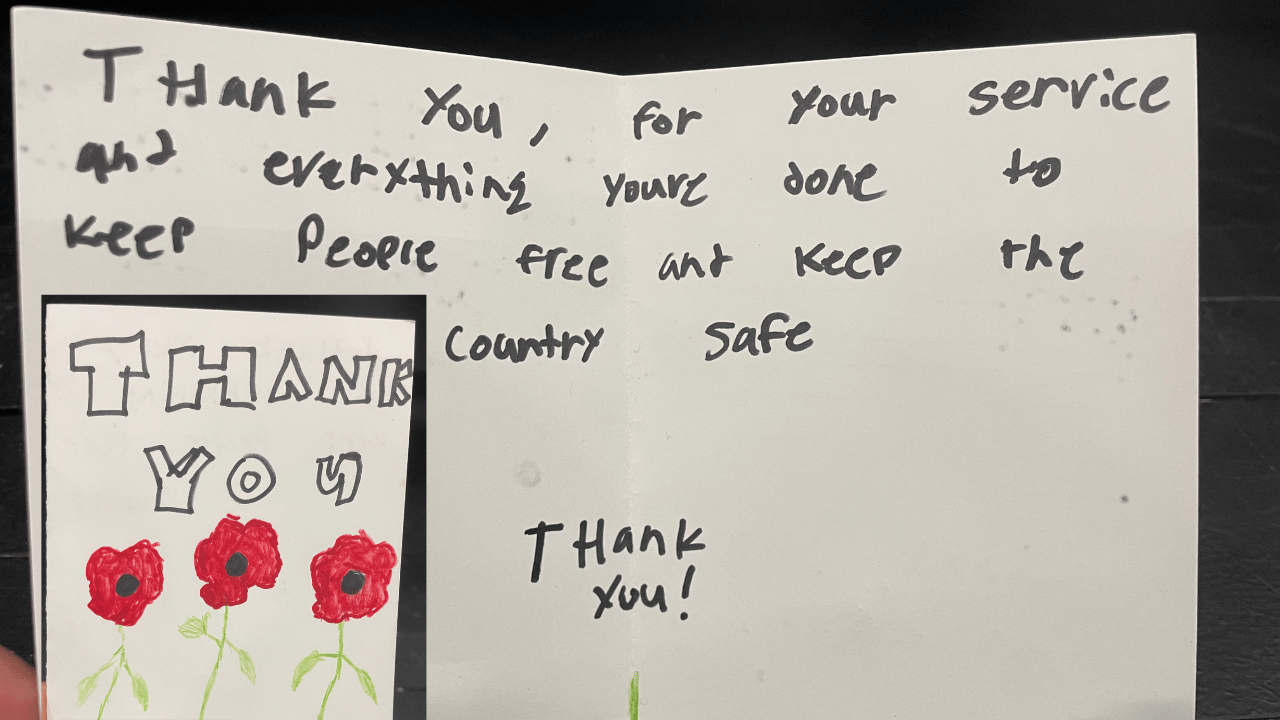 THank You, for your service
and everything youre done to
keep People free and keep the
Country safe
THank
you!
THANK
YOU